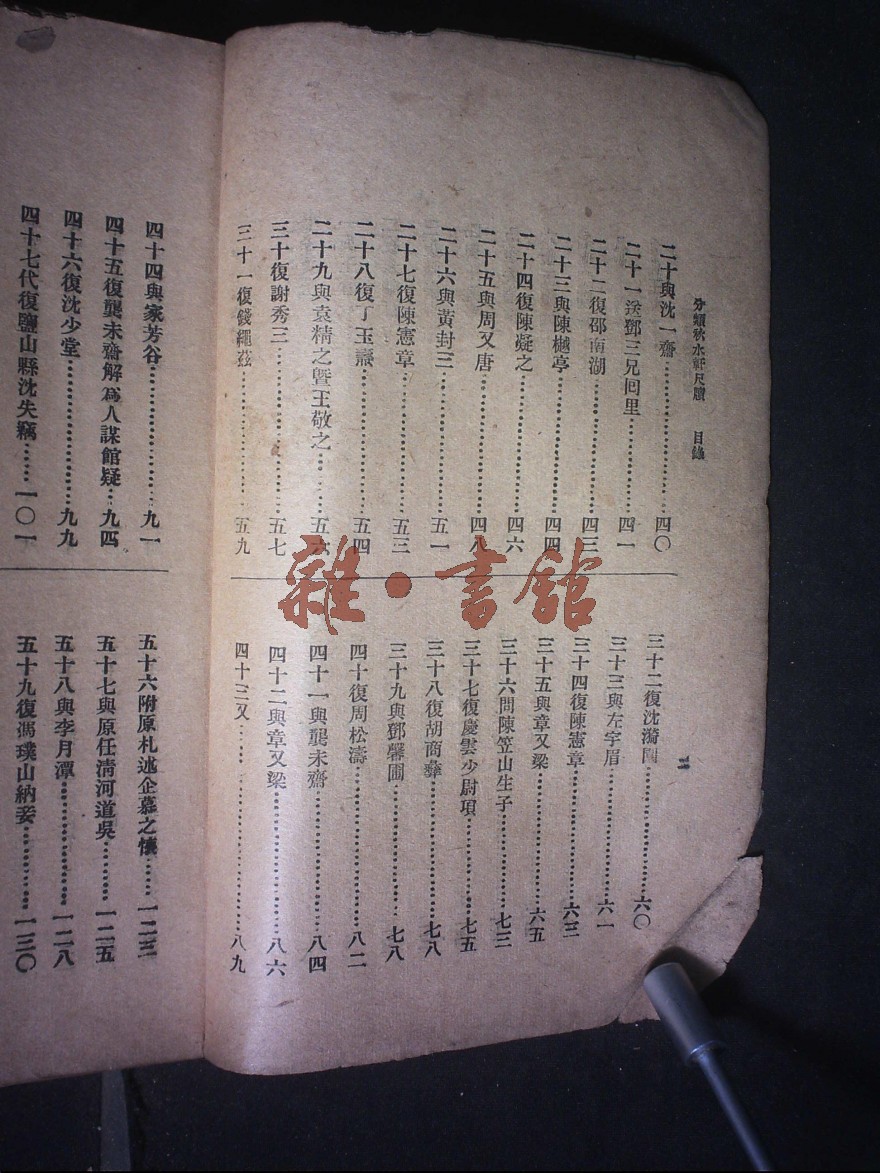 分類秋水軒尺牘　目錄
二十與沈一齋……四〇
二十一送鄧三兄回里……四一
二十二復邵南湖……四三
二十三與陳樾亭……四四
二十四復陳凝之……四六
二十五與周又唐……四八
二十六與黃封三……五一
二十七復陳憲章……五三
二十八復丁玉……五四
二十九與袁精之暨王敬之……五六
三十復謝秀三……五七
三十一復錢繩茲……五九
三十二復沈漪……六〇
三十三與左宇眉……六一
三十四復陳憲章……六三
三十五與章又梁……六五
三十六問陳笠山生子……七三
三十七復慶雲少尉項……七五
三十八復胡商彝……七八
三十九與鄧馨圃……七八
四十復周松濤……八二
四十一與龔未齋……八四
四十二與章又梁……八六
四十三又……八九
二
四十四與家芳谷……九一
四十五復龔未齋解爲人謀館疑…九四
四十六復沈少堂……九九
四十七代復鹽山縣沈失竊……一〇一
五十六附原札述企慕之懷……一二三
五十七與原任清河道吳……一二五
五十八與李月潭……一二八
五十九復馮璞山納妾……一三〇
雜·書館